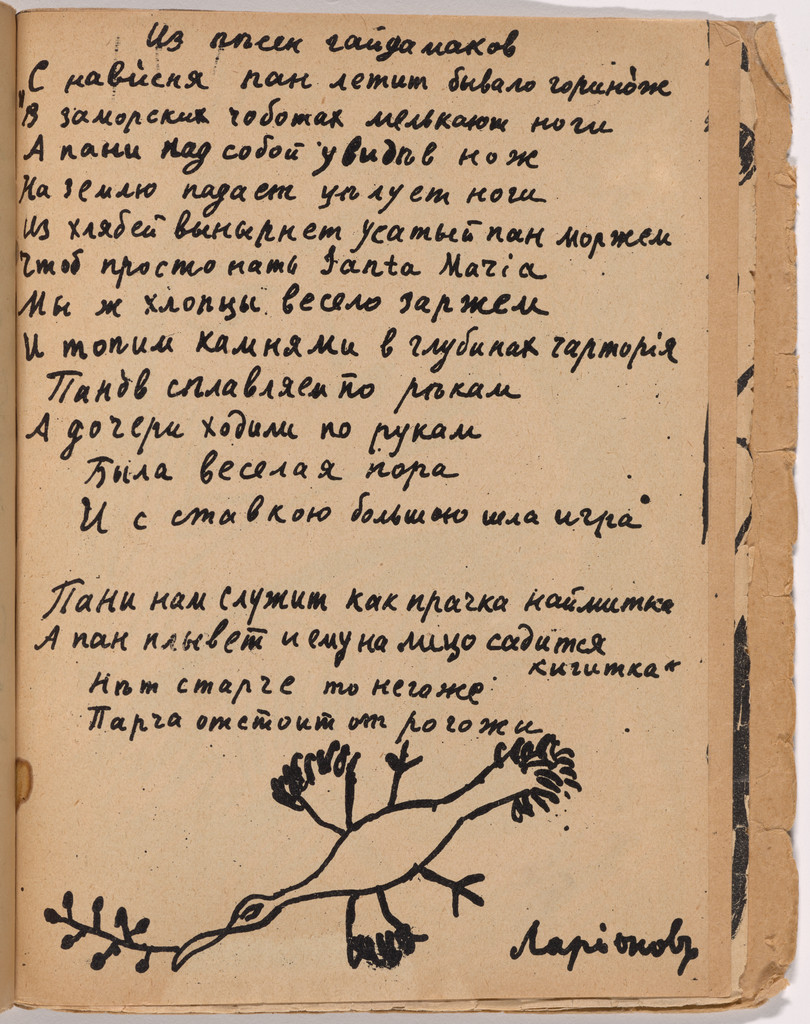 Из пѣсен гайдамаков
„С навиеня пан летит бывало горинож
В заморских чоботах мелькают ноги
А пани над собой увидѣв нож
На землю падает цѣлует ноги
Из хлябей вынырнет усатый пан моржем
Чтоб простонать Santa Maria
Мы ж хлопцы весело заржем
И топим камнями в глубинах чарторія
Панов сплавляем по рѣкам
А дочери ходили по рукам
Была веселая пора
И с ставкою большою шла игра
Пани нам служит как прачка наймитка
А пан плывет и ему на лицо садится
кигитка“
Нѣт старче то негоже
Парча отстоит от рогожи
Ларіоновъ